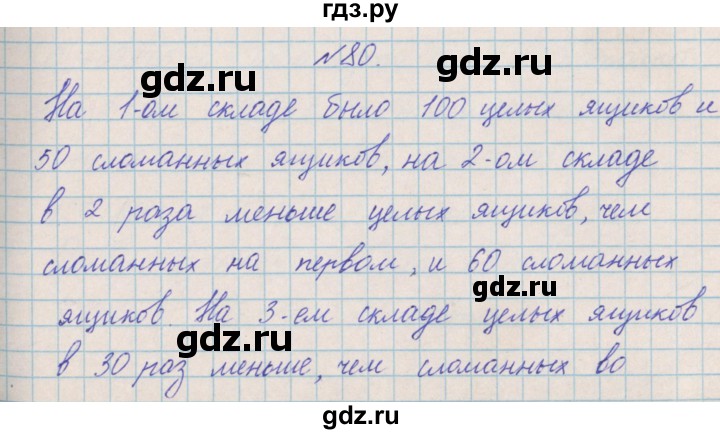 гдз.ру
№80.
gdz.ru
gdz.ru
На 1-ом складе было 100 целых ящиков и
50 сломанных ящиков, на 2-ом складе
в 2 раза меньше целых ящиков, чем
сломанных на первом, и 60 сломанных
gdz.ru
ящиков. На 3-ем складе целых ящиков
gdz.ru
в 30 раз меньше, чем сломанных во
gdz.ru